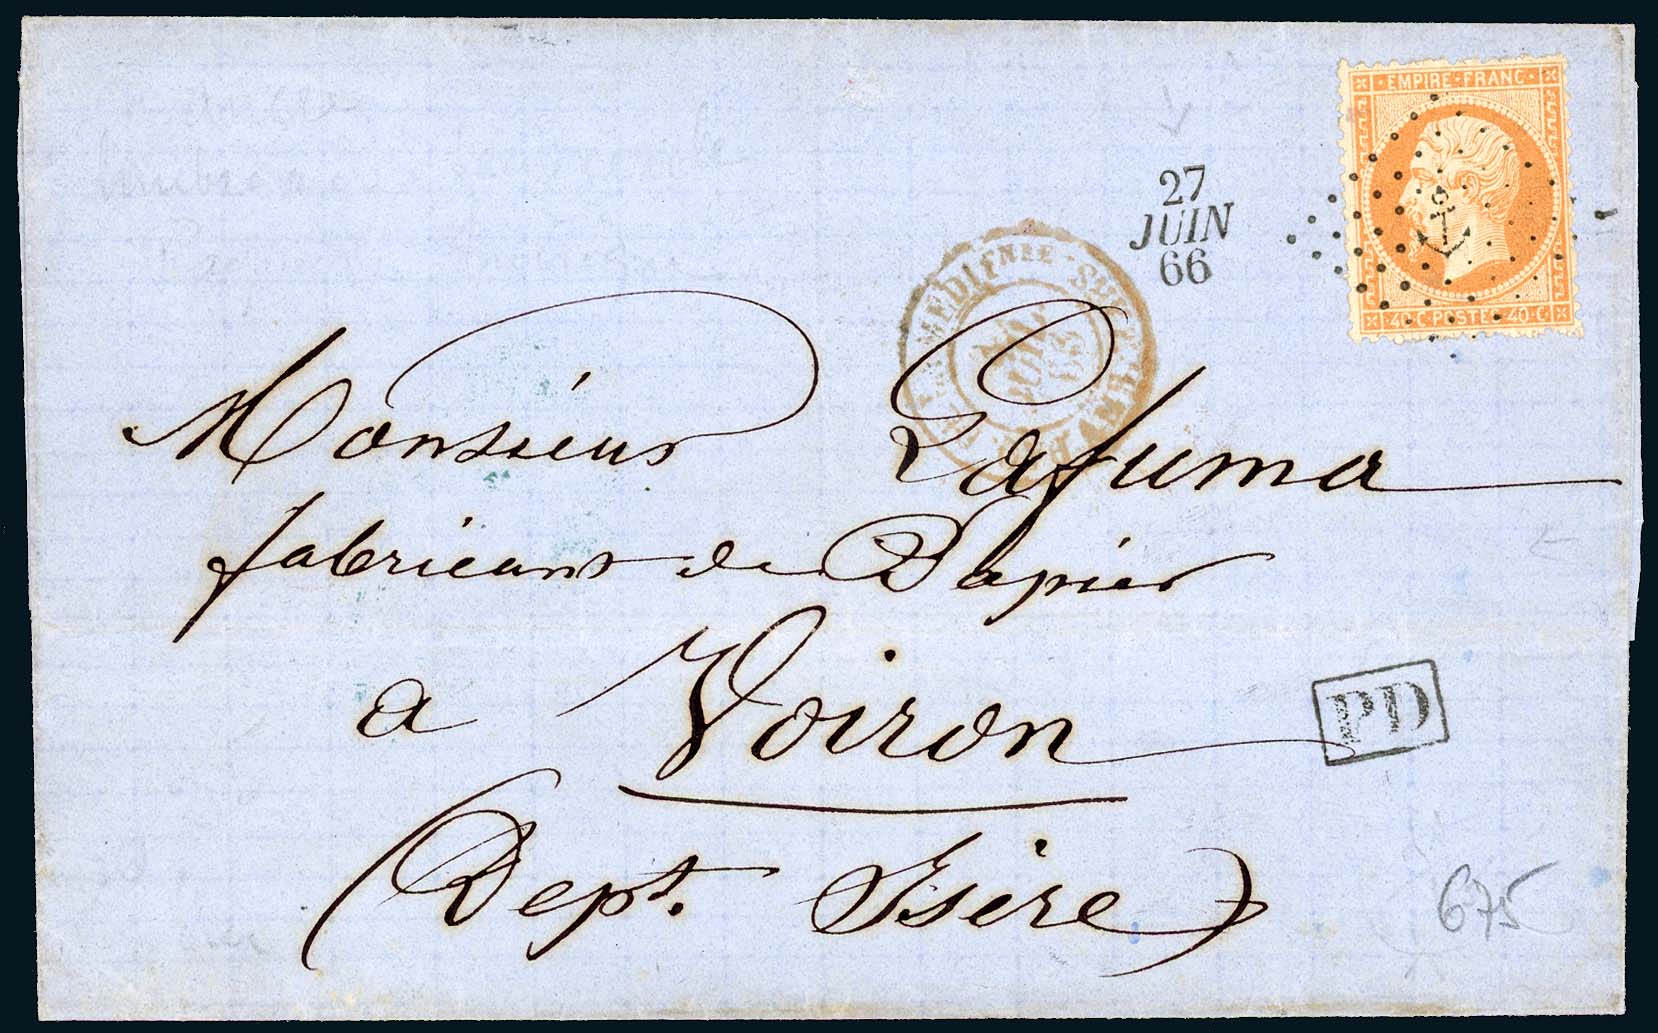 EMPIRE FRANC
40 C POSTE 40 C
27
JUIN
66
Monsieur Lafuma
fabricant de Papier
a Voiron
PD
(Dept. Isère)
675